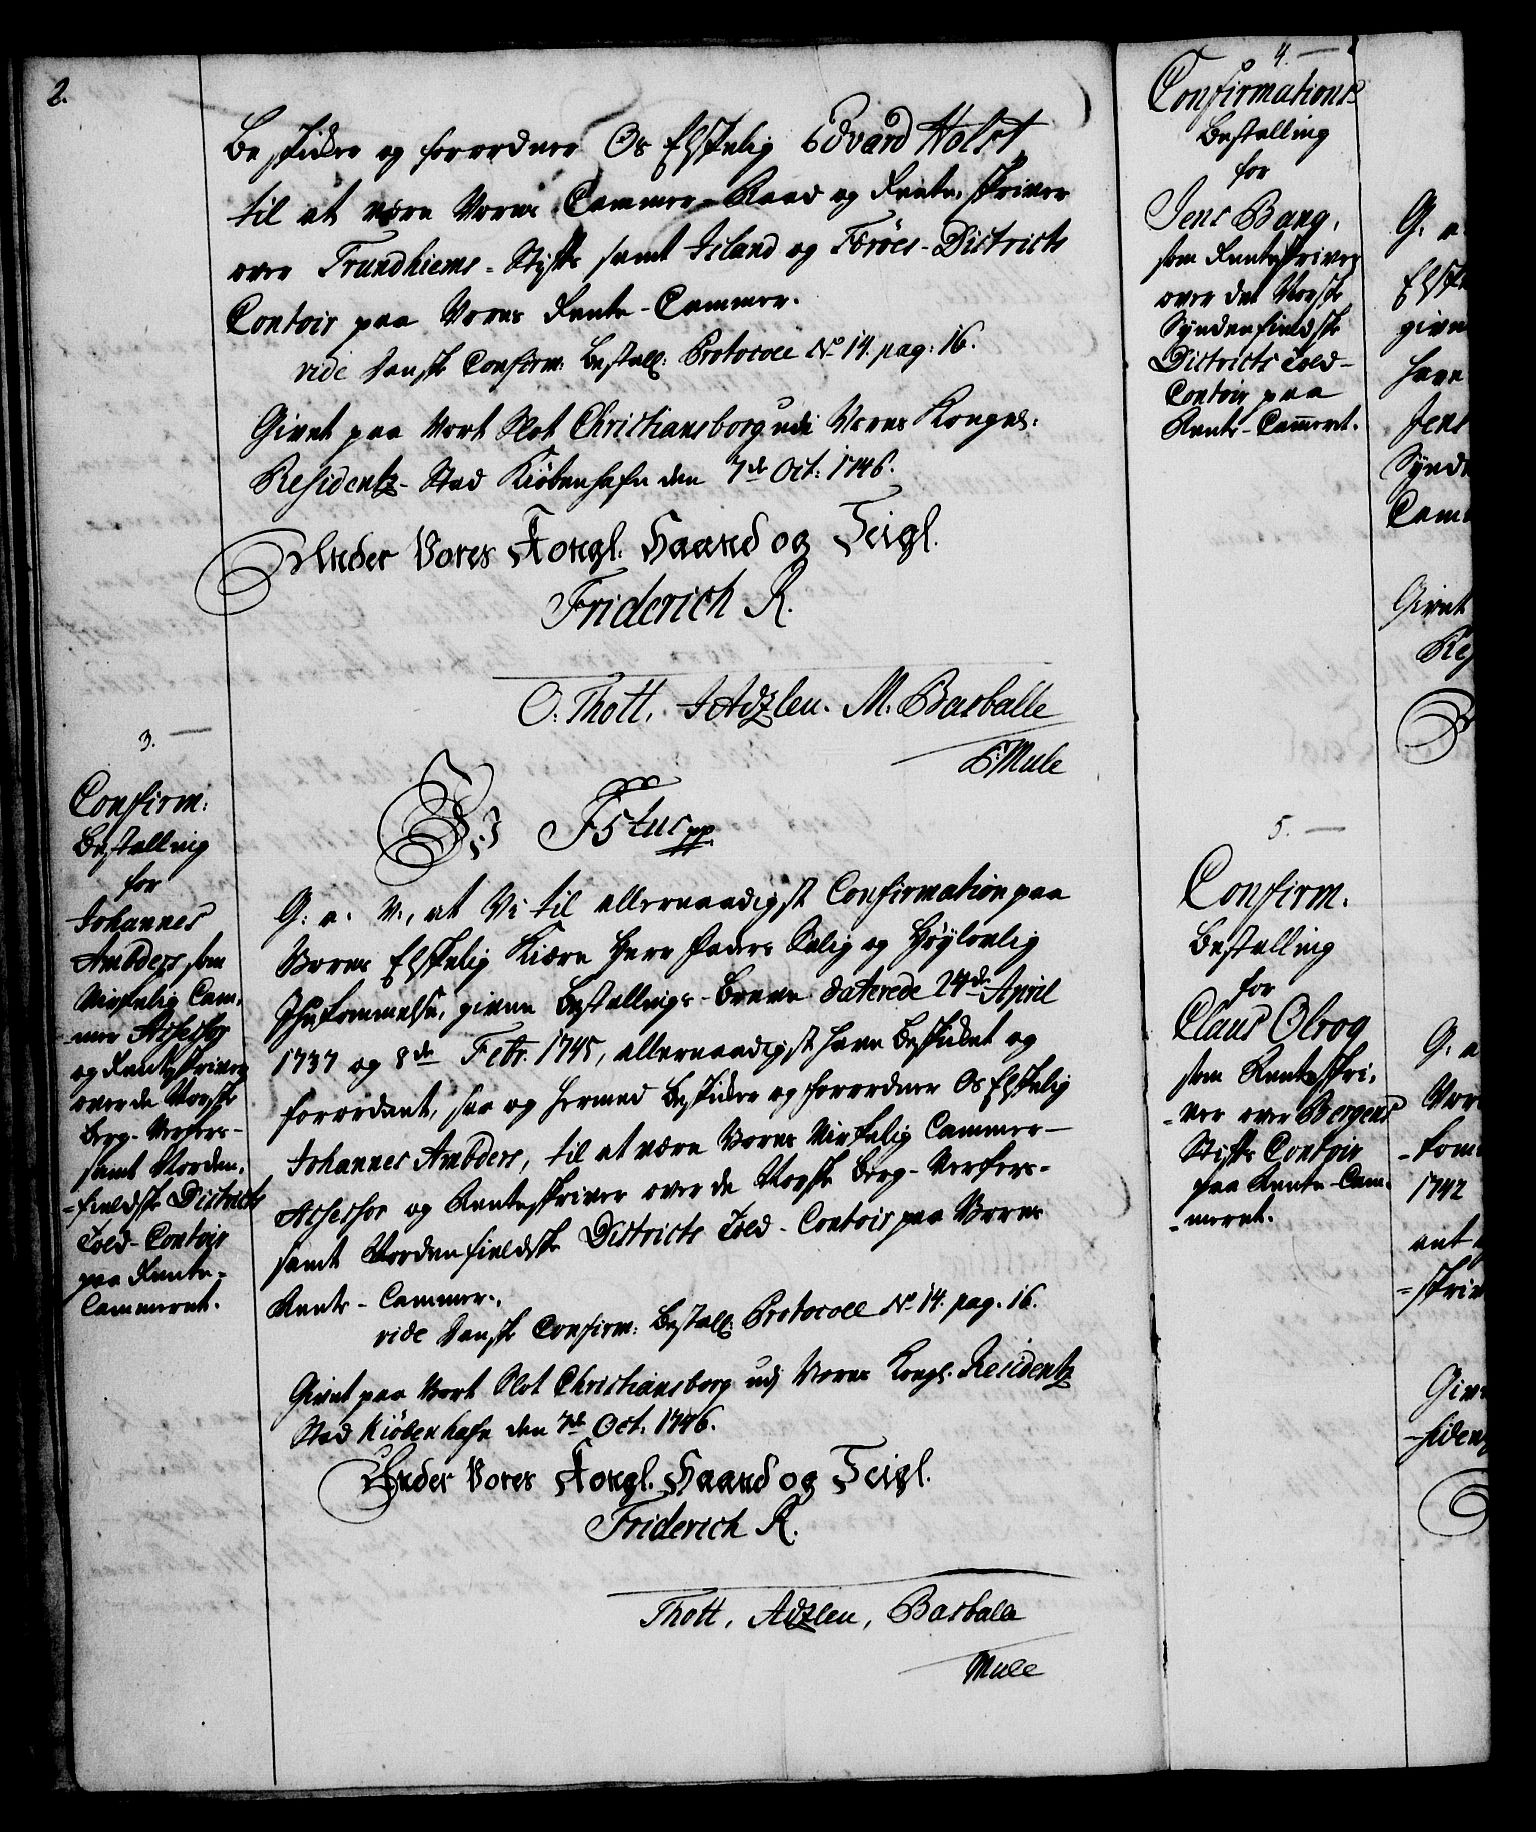 2.
Beskikker og forordner Os Elskelig Edvard Holst
til at være Vores Cammer-Raad og Rente-skriver
over Trundhiems-Stifts samt Island og Færöes-Districts
Contoir paa Vores Rente-Cammer.
vide Danske Confirm: Bestall: Protocoll No 14. pag: 16.
Givet paa Vort Slot Christiansborg udi Vores Kongel:
Residentz-Stad Kiöbenhafn den 7de Oct: 1746.
Under Vores Kongl. Haand og Seigl.
Friderich R.
O. Thott. JAdzlen. M. Basballe
Mule
3.
Confirm:
Bestalling
for
Johannes
Ambders som
Virkelig Cam-
mer Assessor
og Renteskriver
over de Norske
Berg-Verkers-
samt Norden-
-fieldske Districts
Told-Contoir
paa Rente-
Cammeret.
F5tus pp
G: a. V., at Vi til allernaadigst Confirmation paa
Vores Elskelig Kiære Herr Faders Salig og Höylovlig
Ihukommelse, givne Bestallings-Breve daterede 24de April
1737 og 8de Febr. 1745, allernaadigst have Beskikket og
forordnet, saa og hermed Beskikker og forordner Os Elskelig
Johannes Ambders, til at være Vores Virkelig Cammer-
Assessor og Renteskriver over de Norske Berg-Verkers-
samt Nordenfieldske Districts Told-Contoir paa Vores
Rente-Cammer.
vide Danske Confirm: Bestall: Protocoll No 14. pag. 16.
Givet paa Vort Slot Christiansborg udj Vores Kongl. Residentz
Stad Kiöbenhafn den 7de Oct. 1746.
Under Vores Kongl. Haand og Seigl.
Friderich R.
Thott, Adzlen, Basballe
Mule
4.
Confirmations
Bestalling
for
Jens Bang,
som Renteskriver
over det Norske
Syndenfieldske
Districts Told-
Contoir paa
Rente-Cam̅eret.
5.
Confirm.
Bestalling
for
Claus Olrog
som Renteskri-
-ver over Bergens
Stifts Contoir
paa Rente-Cam-
-meret.
G. a.
Elske
give
have
Jens
Synd
Cam
Givet
Res
G. a
Vor
-kom
1742
-skriv
Give
-siden